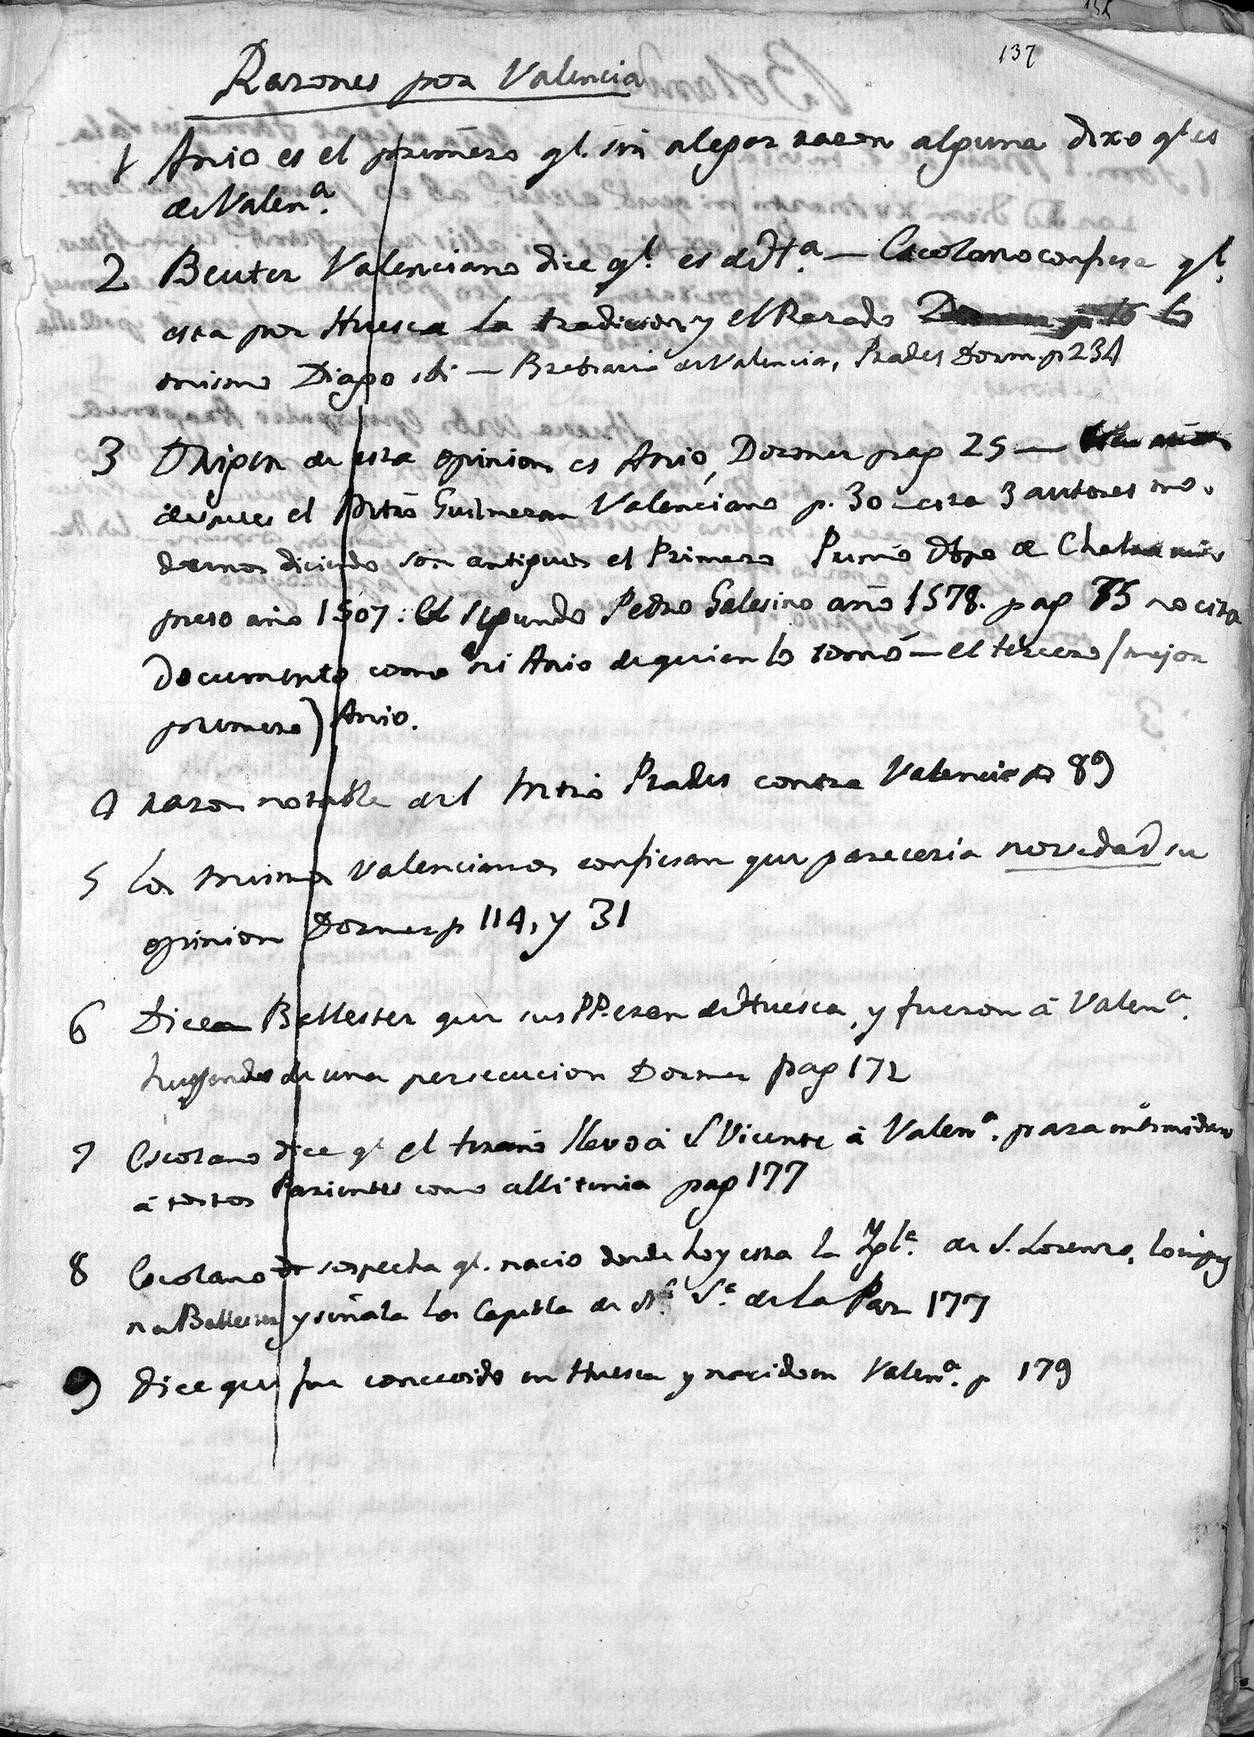 137
Razones por Valencia
1 Anio es el primero qe. sin alegar razon alguna dixo qe es
de Valena.
2 Beuter Valenciano dice qe. es de Ha. — Escolano confiesa qe.
esta por Huesca la tradicion y el Rezado lo
mismo Diago ibi — Brebiario de Valencia, Prades Dorm. p 234
3 Origen de esta opinion es Anio, Dormer pag 25 —
despues el Mtro Guilmeran Valenciano p. 30 cita 3 autores mo-
dernos diciendo son antiguos el Primero Primo Obpo de
preso año 1507: El segundo Pedro Galesino año 1578. pag 35 no cita
Documento como ni Anio de quien lo tomó — el tercero (mejor
primero) Anio.
4 razon notable del Mtro Prades contra Valencia p 89
5 los mismos Valencianos confiesan que pareceria novedad su
opinion Dormer p 114, y 31
6 Dice Ballester que sus PP. eran de Huesca, y fueron á Valena.
huyendo de una persecucion Dormer pag 172
7 Escolano dice qe el tirano llevo á S Vicente á Valena. para intimidar
á tantos Parientes como alli tenia pag 177
8 Escolano sospecha qe. nacio donde hoy esta la Ygla. de S. Lorenzo, lo
na Ballester y señala la Capilla de Na. Sa. de la Paz 177
9 dice que fue concevido en Huesca y nacido en Valena. p 179